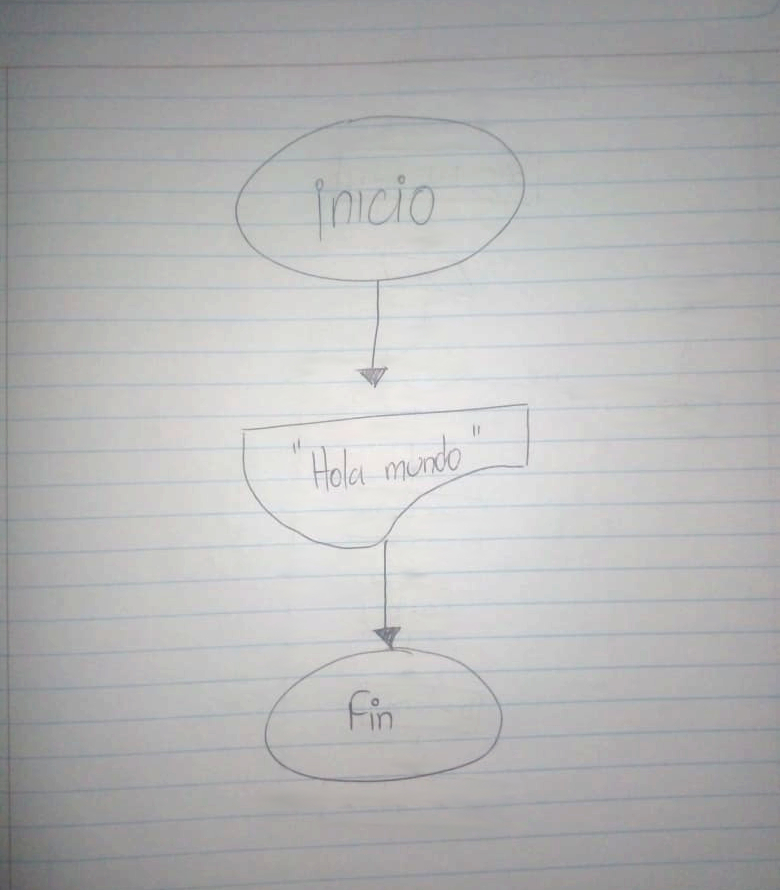 inicio
"Hola mundo"
Fin